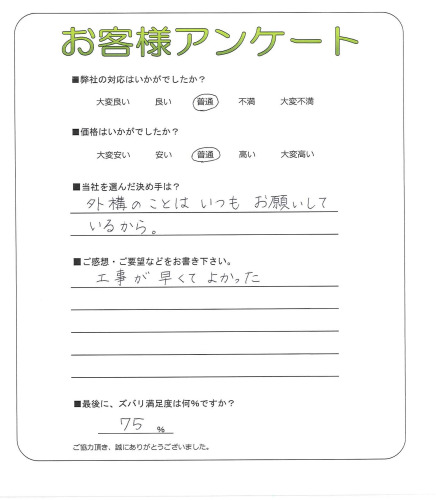 お客様アンケート
■弊社の対応はいかがでしたか？
大変良い 良い 普通 不満 大変不満
■価格はいかがでしたか？
大変安い 安い 普通 高い 大変高い
■当社を選んだ決め手は？
外構のことは いつも お願いして
いるから。
■ご感想・ご要望などをお書き下さい。
工事が 早くて よかった
■最後に、ズバリ満足度は何％ですか？
75 ％
ご協力頂き、誠にありがとうございました。